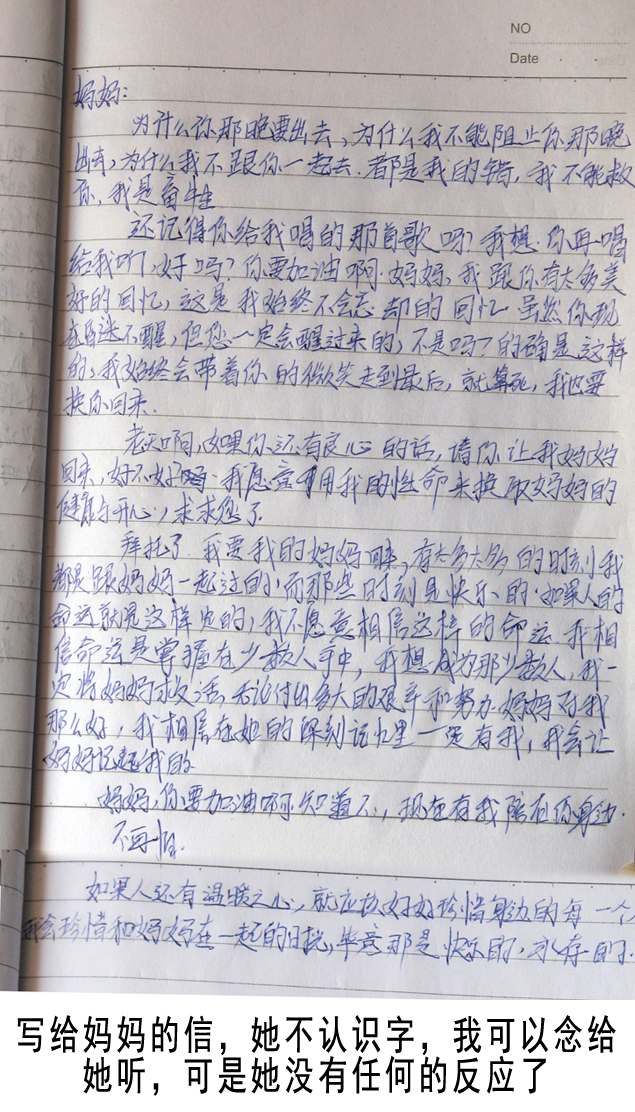 NO
Date
妈妈:
为什么你那晚要出去,为什么我不能阻止你那晚
出去,为什么我不跟你一起去.都是我的错,我不能救
你,我是畜牲
还记得你给我唱的那首歌吗?我想你再唱
给我听,好吗?你要加油啊.妈妈,我跟你有太多美
好的回忆,这是我始终不会忘却的回忆.虽然你现
在昏迷不醒,但您一定会醒过来的,不是吗?的确是这样
的,我始终会带着你的微笑走到最后,就算死,我也要
换你回来.
老天啊,如果你还有良心的话,请你让我妈妈
回来,好不好.我愿意用我的性命来换取妈妈的
健康与开心,求求您了
拜托了.我要我的妈妈回来,有太多太多的时刻我
都是跟妈妈一起过的,而那些时刻是快乐的.如果人的
命运就是这样的,我不愿意相信这样的命运.我相
信命运是掌握在少数人手中,我想成为那少数人,我一
定将妈妈救活,无论付出多大的艰辛和努力.妈妈对我
那么好,我相信在她的深刻记忆里一定有我,我会让
妈妈记起我的
妈妈,你要加油啊,知道不,现在有我陪在你身边.
不再怕.
如果人还有温暖之心,就应该好好珍惜身边的每一个
我会珍惜和妈妈在一起的日子,毕竟那是快乐的,永存的.
写给妈妈的信，她不认识字，我可以念给
她听，可是她没有任何的反应了